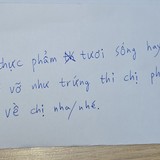 thực phẩm tươi sống hay
vỡ như trứng thì chị ph
về chị nha/nhé.